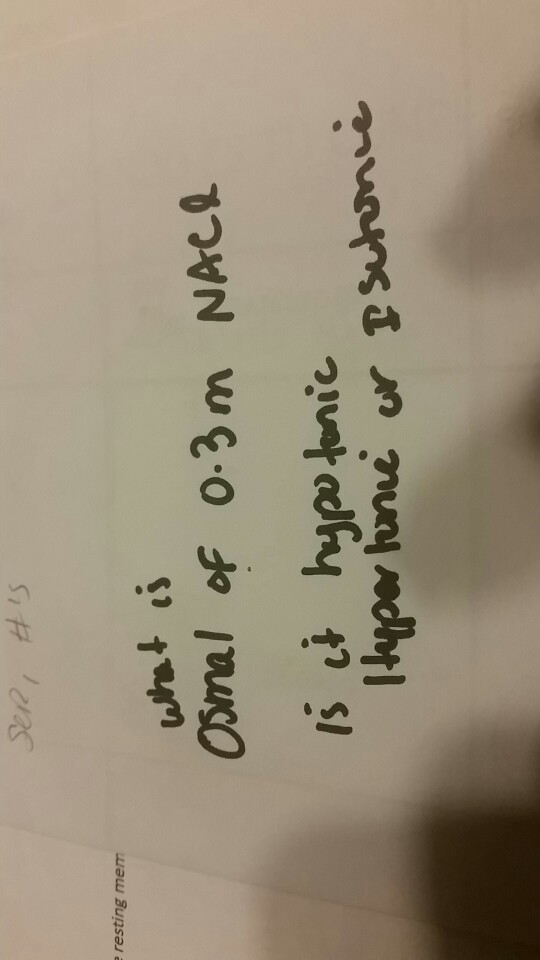 SER, H is
what is
Osmal of 0.3m NACl
Is it hypotonic
Hypertonic or Isotonic
e resting mem